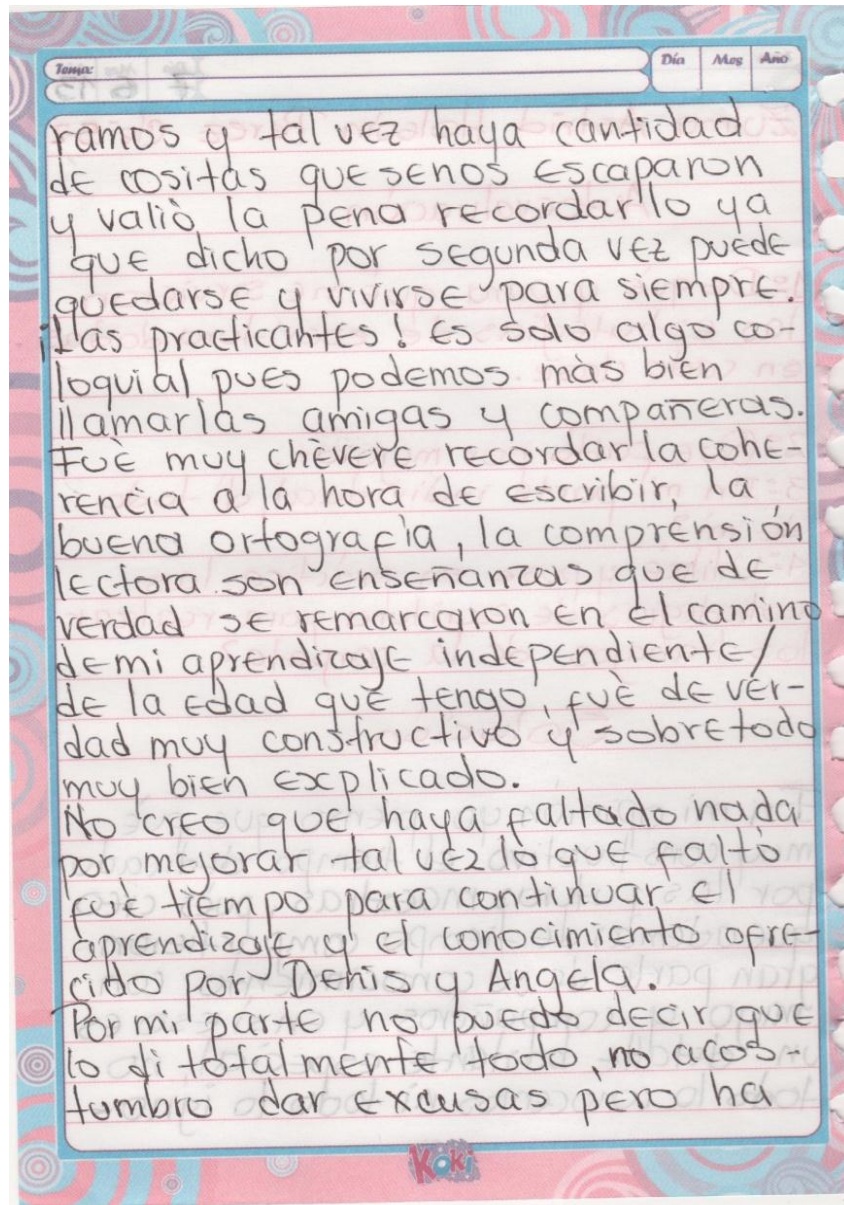 Tema:
Día Mes Año
ramos y tal vez haya cantidad
de cositas que senos escaparon
y valiò la pena recordarlo ya
que dicho por segunda vez puede
quedarse y vivirse para siempre.
¡Las practicantes! Es solo algo co-
loquial pues podemos màs bien
llamarlas amigas y compañeras.
Fuè muy chèvere recordar la cohe-
rencia a la hora de escribir, la
buena ortografìa, la comprensión
lectora son enseñanzas que de
verdad se remarcaron en el camino
demi aprendizaje independiente/
de la edad que tengo, fuè de ver-
dad muy constructivo y sobretodo
muy bien explicado.
No creo que haya faltado nada
por mejorar tal vez lo que faltò
fue tiempo para continuar el
aprendizaje y el conocimiento ofre-
cido por Denis y Angela.
Por mi parte no puedo decir que
lo di totalmente todo, no acos-
tumbro dar excusas pero ha
Koki